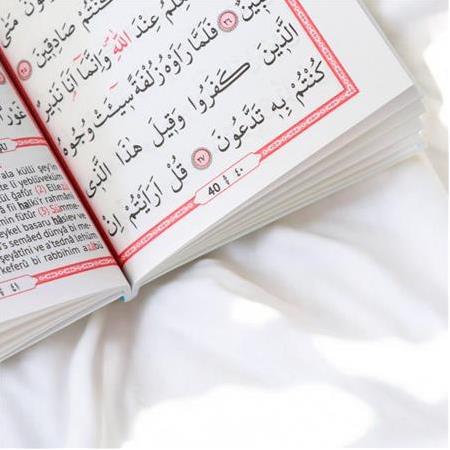 كُنْتُمْ صَادِقِينَ ﴿٢٥﴾
عِنْدَ اللّٰهِ وَاِنَّمَٓا اَنَا نَذِيرٌ
﴿٢٦﴾ فَلَمَّا رَاَوْهُ زُلْفَةً سِيٓـَٔتْ وُجُوهُ
الَّذِينَ كَفَرُوا وَقِيلَ هٰذَا الَّذِي
كُنْتُمْ بِهِ تَدَّعُونَ ﴿٢٧﴾ قُلْ اَرَاَيْتُمْ اِنْ
40 ٤٠
küllü şey'in
yeblüveküm
Ğafûr (2) Elle
fî halkı'r rahmâni
fütûr (3) Sümme
basaru hâsiev ve
semâed dünyâ bi me-
ve a'tednâ lehüm
keferû bi rabbihim
٤١